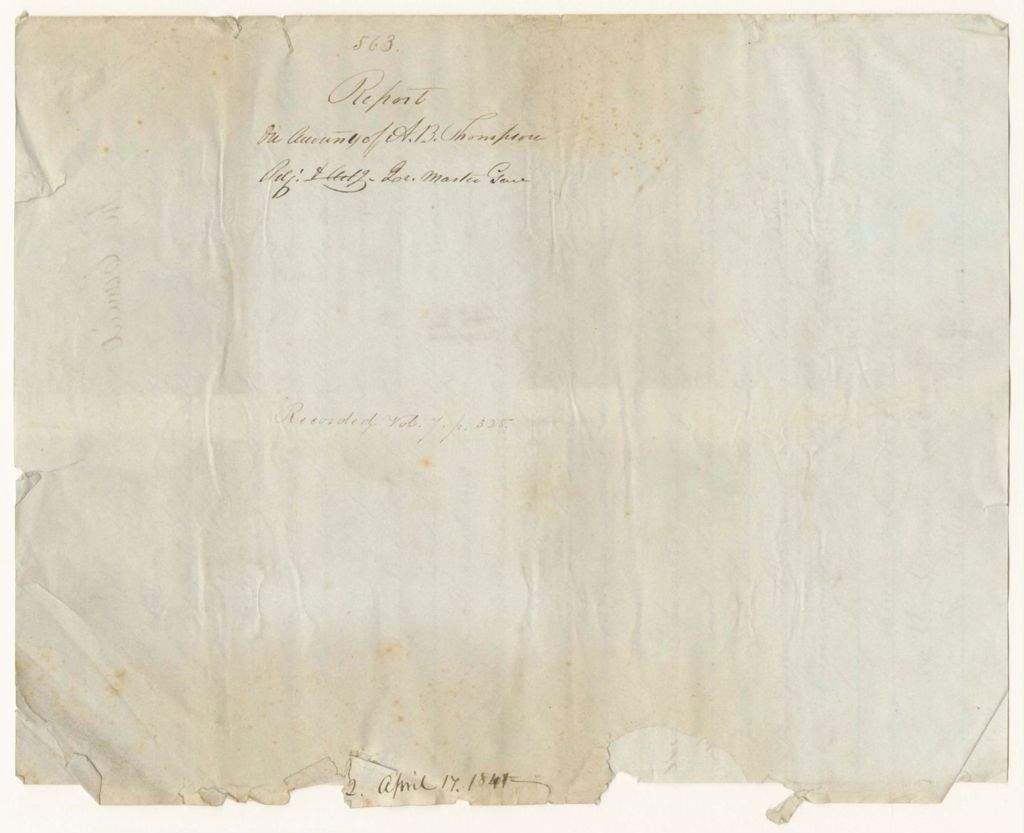 563.
Report
On Accounts of A. B. Thompson
Adj. & Actg. Qr. Master Genl
Recorded Vol. 7. p. 325.
2. April 17. 1841